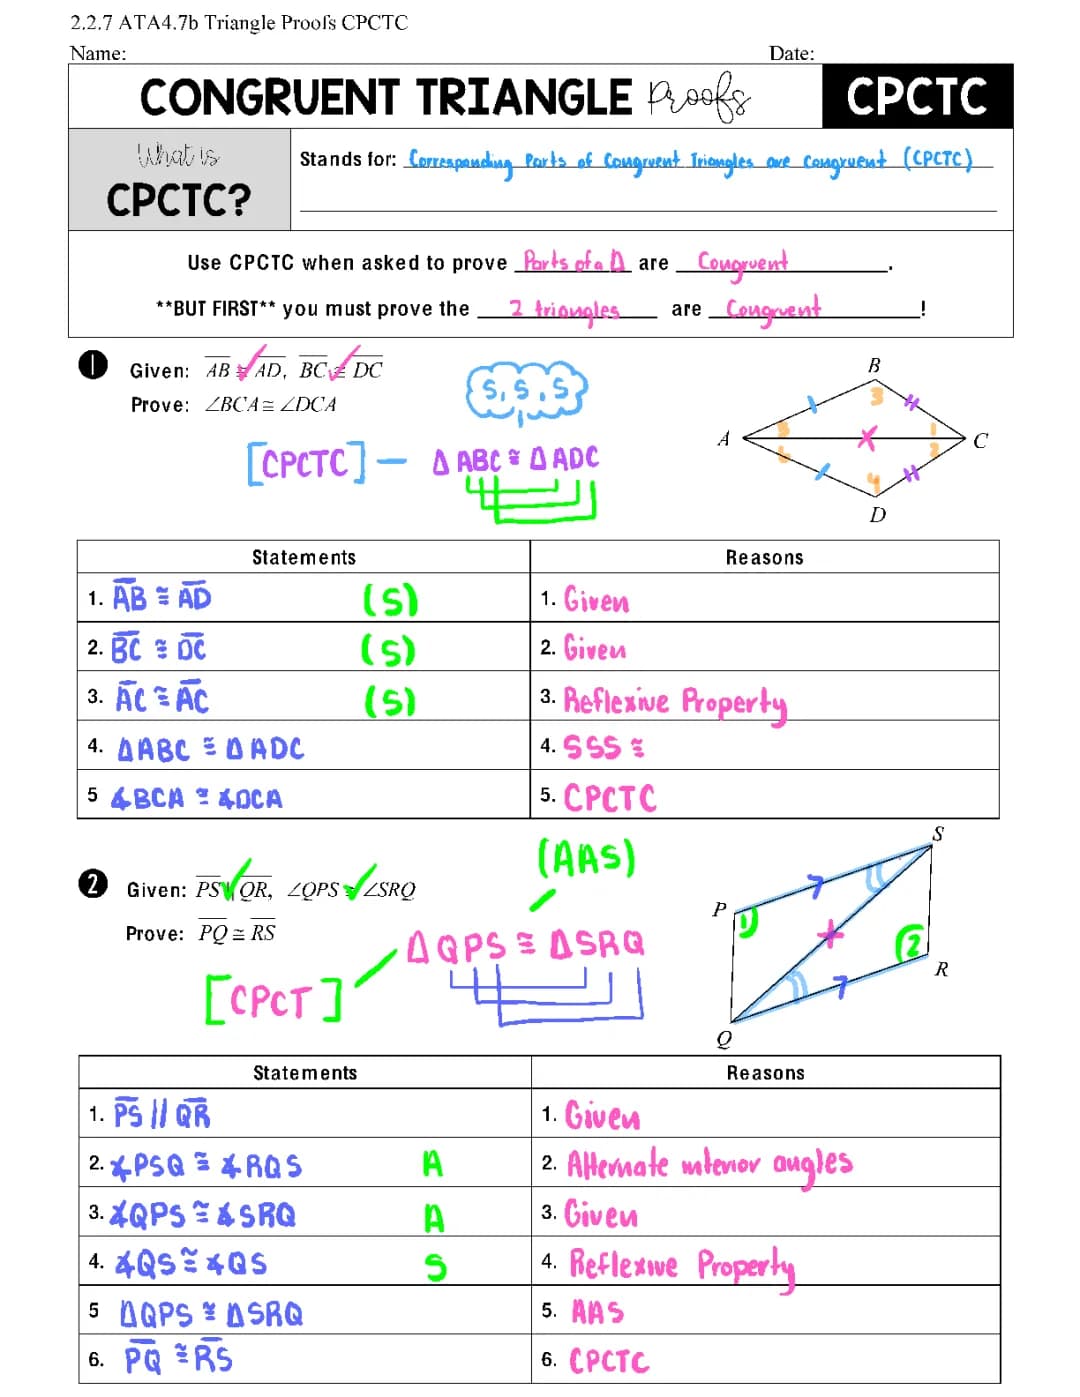 2.2.7 ATA4.7b Triangle Proofs CPCTC
Name: Date:
CONGRUENT TRIANGLE Proofs CPCTC
What is
CPCTC?
Stands for: Corresponding Parts of Congruent Triangles are Congruent (CPCTC)
Use CPCTC when asked to prove Parts of a Δ are Congruent.
**BUT FIRST** you must prove the 2 triangles are Congruent!
1 Given: AB ≅ AD, BC ≅ DC
Prove: ∠BCA ≅ ∠DCA
S, S, S
[CPCTC] — Δ ABC ≅ Δ ADC
B
3
A 5 1 C
6 2
4
D
Statements Reasons
1. AB ≅ AD (S) 1. Given
2. BC ≅ DC (S) 2. Given
3. AC ≅ AC (S) 3. Reflexive Property
4. ΔABC ≅ Δ ADC 4. SSS ≅
5 ∡BCA ≅ ∡DCA 5. CPCTC
(AAS)
2 Given: PS ∥ QR, ∠QPS ≅ ∠SRQ
Prove: PQ ≅ RS
ΔQPS ≅ ΔSRQ
[CPCT]
S
P
1
2
R
Q
Statements Reasons
1. PS // QR 1. Given
2. ∡PSQ ≅ ∡RQS A 2. Alternate interior angles
3. ∡QPS ≅ ∡SRQ A 3. Given
4. ∡QS ≅ ∡QS S 4. Reflexive Property
5 ΔQPS ≅ ΔSRQ 5. AAS
6. PQ ≅ RS 6. CPCTC